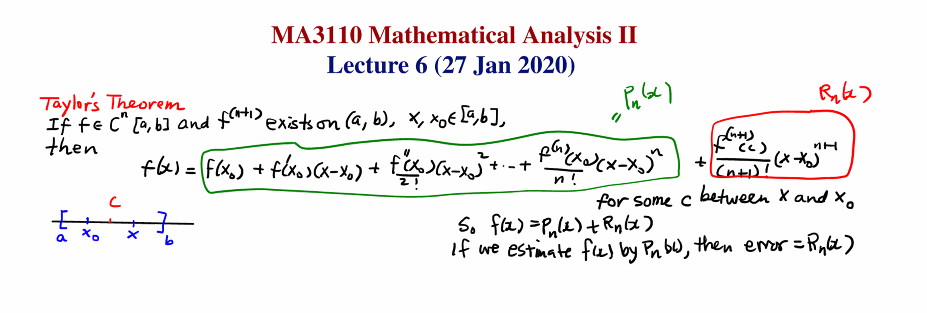 MA3110 Mathematical Analysis II
Lecture 6 (27 Jan 2020)
Pₙ(x)
Rₙ(x)
Taylor's Theorem
If f ∈ Cⁿ [a,b] and f⁽ⁿ⁺¹⁾ exists on (a, b), x, x₀ ∈ [a,b],
then
f(x) = f(x₀) + f'(x₀)(x-x₀) + f''(x₀)/2! (x-x₀)² + ... + f⁽ⁿ⁾(x₀)/n! (x-x₀)ⁿ + f⁽ⁿ⁺¹⁾(c)/(n+1)! (x-x₀)ⁿ⁺¹
for some c between x and x₀
c
[ ]
a x₀ x b
So f(x) = Pₙ(x) + Rₙ(x)
If we estimate f(x) by Pₙ(x), then error = Rₙ(x)